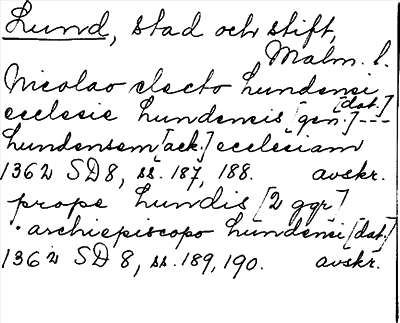 Lund, stad och stift,
Malm. l.
Nicolao electo Lundensi
[dat.]
ecclesie Lundensis [gen.] ---
Lundensem [ack.] ecclesiam
1362 SD 8, ss. 187, 188. avskr.
prope Lundis [2 ggr]
archiepiscopo Lundensi [dat.]
1362 SD 8, ss. 189, 190. avskr.